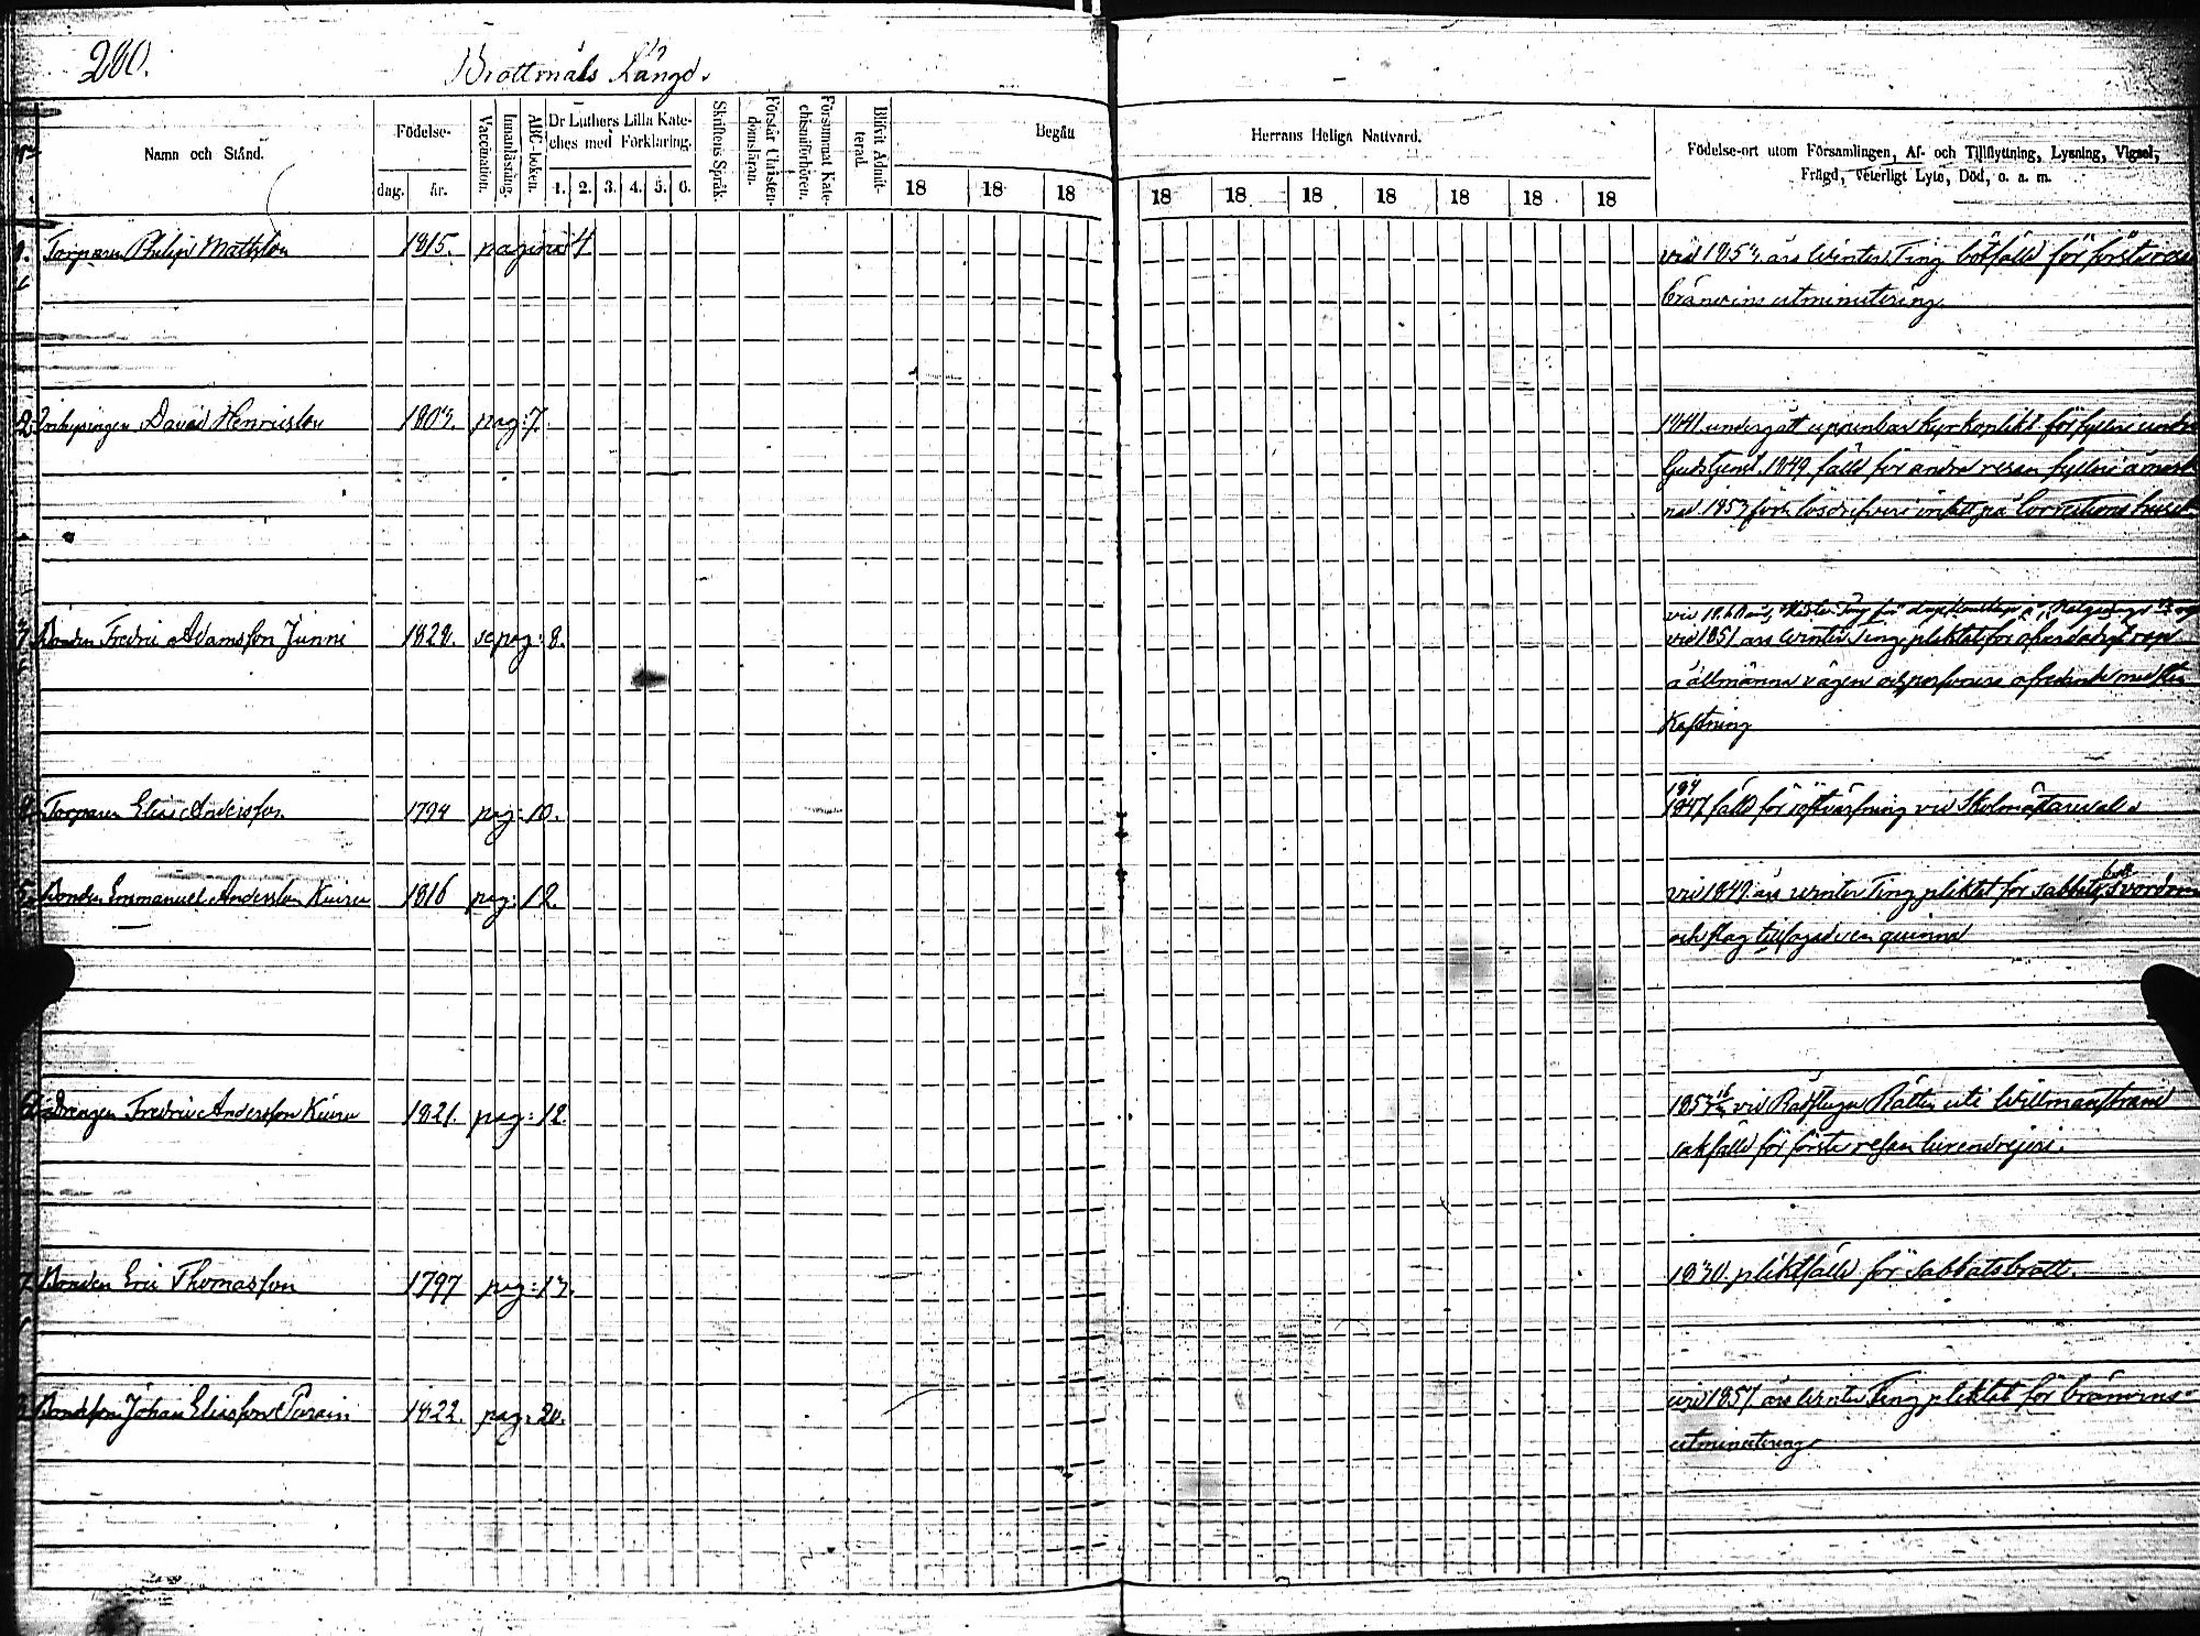 200.
Brottmåls Längd.
Namn och Stånd.
Födelse-
dag. år.
Vaccination.
Innanläsning.
ABC-boken.
Dr Luthers Lilla Kate-
ches med Förklaring.
1. 2. 3. 4. 5. 6.
Skriftens Språk.
Förstår Christen-
domsläran.
Försummat Kate-
chismiförhören.
Blifvit Admit-
terad.
Begått
18 18 18
Herrans Heliga Nattvard.
18 18 18 18 18 18 18
Födelse-ort utom Församlingen, Af- och Tillflyttning, Lysning, Vigsel,
Frägd, Veterligt Lyte, Död, o. a. m.
1. Torparen Philip Mattsson 1815. pagina 4. vid års Winter Ting botfälld för första resan
bränvins utminutering.
2. Inhysingen David Henricsson pag: 7. 1841 undergått uppenbar kyrkoplikt för fylleri under
Gudstjenst. 1849 fälld för andra resan fylleri å mark-
nad 1853 för lösdrifveri insatt på Corrections huset
3. Bonden Fredric Adamsson Junni 1828. se pag: 8. vid 1851 års Winter Ting pliktat för
å allmänna vägen och med sten
kastning
4. Torparen Elias Andersson 1794 pag: 10. 1847 fälld för vid Skolmästareval
5. Bonden Emmanuel Andersson Kiuru 1816 pag: 12. vid 1849 års winter Ting pliktat för sabbats brott
och slag tillfogad en quinna
6. drengen Fredric Andersson Kiuru 1821. pag: 12. 1853 vid Rådstugu Rätten uti Willmanstrand
sakfälld för första resan lurendrejeri.
7. Bonden Eric Thomasson 1797 pag: 13. 1830 pliktfälld för Sabbatsbrott.
8. Bondeson Johan Eliasson Parain 1822. pag: 20. vid 1857 års Winter Ting pliktat för bränvins
utminutering